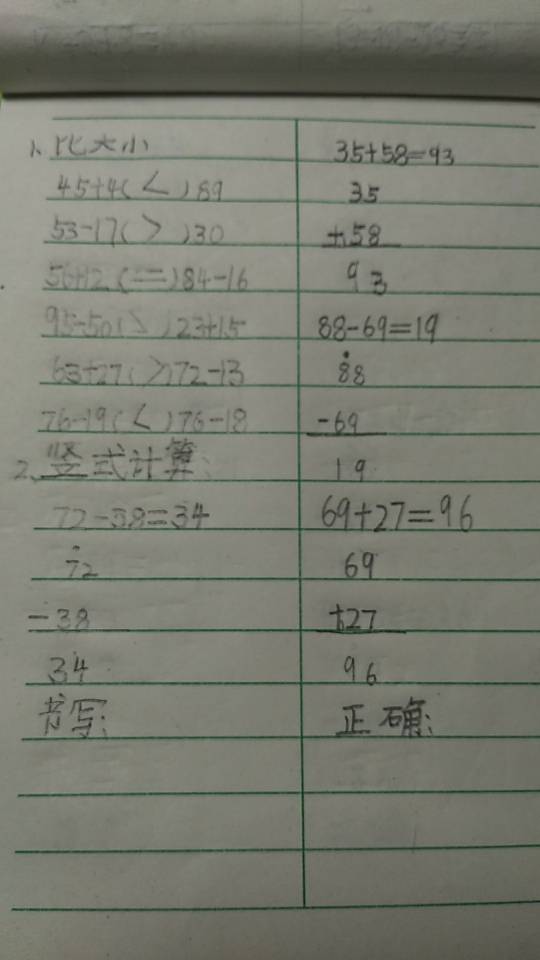 1、比大小
45+4(<)89
53-17(>)30
56+12(=)84-16
95-50(>)23+15
63+27(>)72-13
76-19(<)76-18
2、竖式计算:
72-38=34
72
-38
34
书写:
35+58=93
35
+58
93
88-69=19
88
-69
19
69+27=96
69
+27
96
正确: